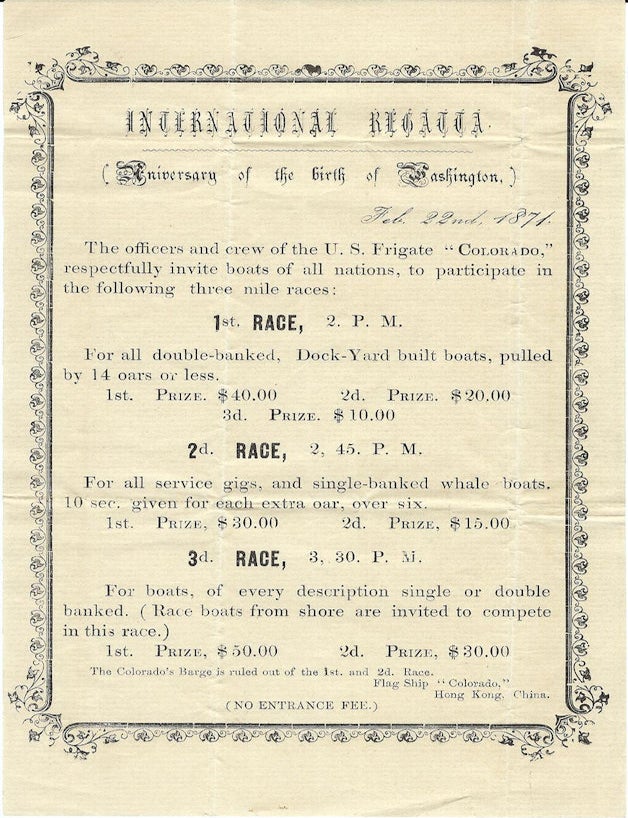 INTERNATIONAL REGATTA.
(Aniversary of the birth of Washington,)
Feb. 22nd, 1871.
The officers and crew of the U. S. Frigate “COLORADO,”
respectfully invite boats of all nations, to participate in
the following three mile races:
1st. RACE, 2. P. M.
For all double-banked, Dock-Yard built boats, pulled
by 14 oars or less.
1st. PRIZE. $40.00 2d. PRIZE. $20.00
3d. PRIZE. $10.00
2d. RACE, 2, 45. P. M.
For all service gigs, and single-banked whale boats.
10 sec. given for each extra oar, over six.
1st. PRIZE, $30.00 2d. PRIZE, $15.00
3d. RACE, 3, 30. P. M.
For boats, of every description single or double
banked. (Race boats from shore are invited to compete
in this race.)
1st. PRIZE, $50.00 2d. PRIZE, $30.00
The Colorado's Barge is ruled out of the 1st. and 2d. Race.
Flag Ship “Colorado,”
Hong Kong, China.
(NO ENTRANCE FEE.)